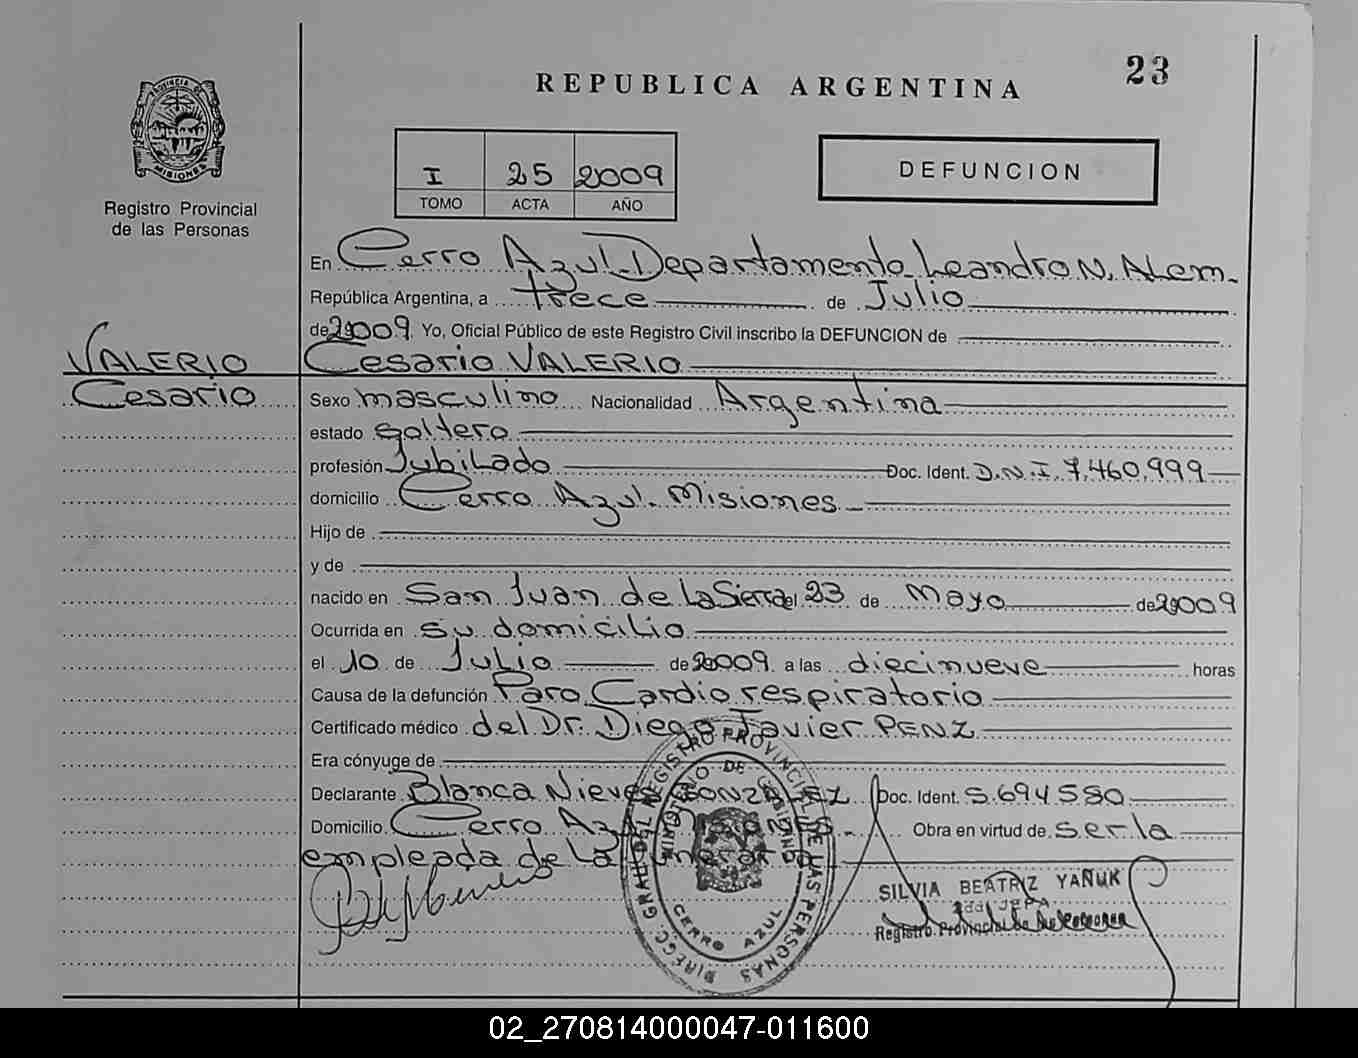 23
REPUBLICA ARGENTINA
PROVINCIA DE
MISIONES
Registro Provincial
de las Personas
I 25 2009
TOMO ACTA AÑO
DEFUNCION
En Cerro Azul - Departamento Leandro N. Alem -
República Argentina, a trece de Julio
de 2009. Yo, Oficial Público de este Registro Civil inscribo la DEFUNCION de
VALERIO Cesario VALERIO
Cesario Sexo masculino Nacionalidad Argentina
estado soltero
profesión Jubilado Doc. Ident. D.N.I. 7,460,999
domicilio Cerro Azul - Misiones
Hijo de
y de
nacido en San Juan de La Sierra el 23 de Mayo de 2009
Ocurrida en su domicilio
el 10 de Julio de 2009 a las diecinueve horas
Causa de la defunción Paro Cardio respiratorio
Certificado médico del Dr. Diego Javier PENZ
Era cónyuge de
Declarante Blanca Nieve GONZALEZ Doc. Ident. 5.694580
Domicilio Cerro Azul Misiones - Obra en virtud de ser la
empleada de La Funeraria
DIREC. GRAL. DEL REGISTRO PROVINCIAL DE LAS PERSONAS
MINISTERIO DE GOBIERNO
CERRO AZUL
SILVIA BEATRIZ YAÑUK
JEFA
Registro Provincial de las Personas
02_270814000047-011600